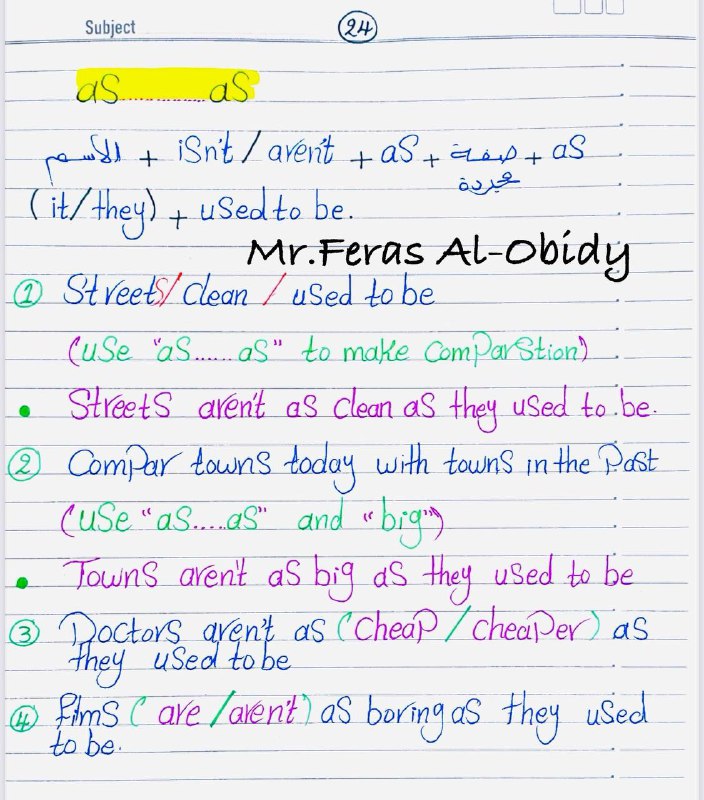 Subject
24
as ............ as
الأسم + isn't / aren't + as + صفة + as
مجردة
(it/they) + used to be.
Mr.Feras Al-Obidy
① Streets/ clean / used to be
(use "as...... as" to make comparstion)
• Streets aren't as clean as they used to be.
② Compar towns today with towns in the Past
(use "as.....as" and "big")
• Towns aren't as big as they used to be
③ Doctors aren't as (cheap / cheaper) as
they used to be
④ films ( are /aren't) as boring as they used
to be.